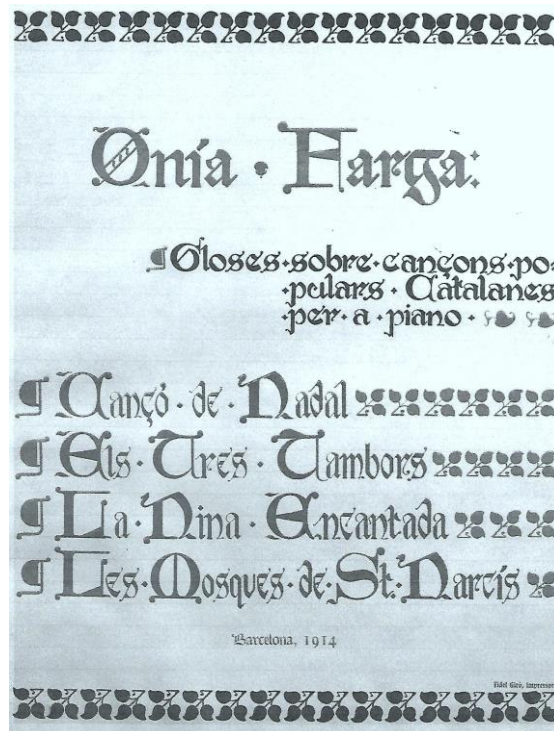 Onía · Farga:
¶ Gloses·sobre·cançons·po-
·pulars · Catalanes
·per·a·piano·
¶ Cançó · de · Nadal
¶ Els · Tres · Tambors
¶ La · Nina · Encantada
¶ Les · Mosques · de · St. Narcís
Barcelona, 1914
Fidel Giró, impressor